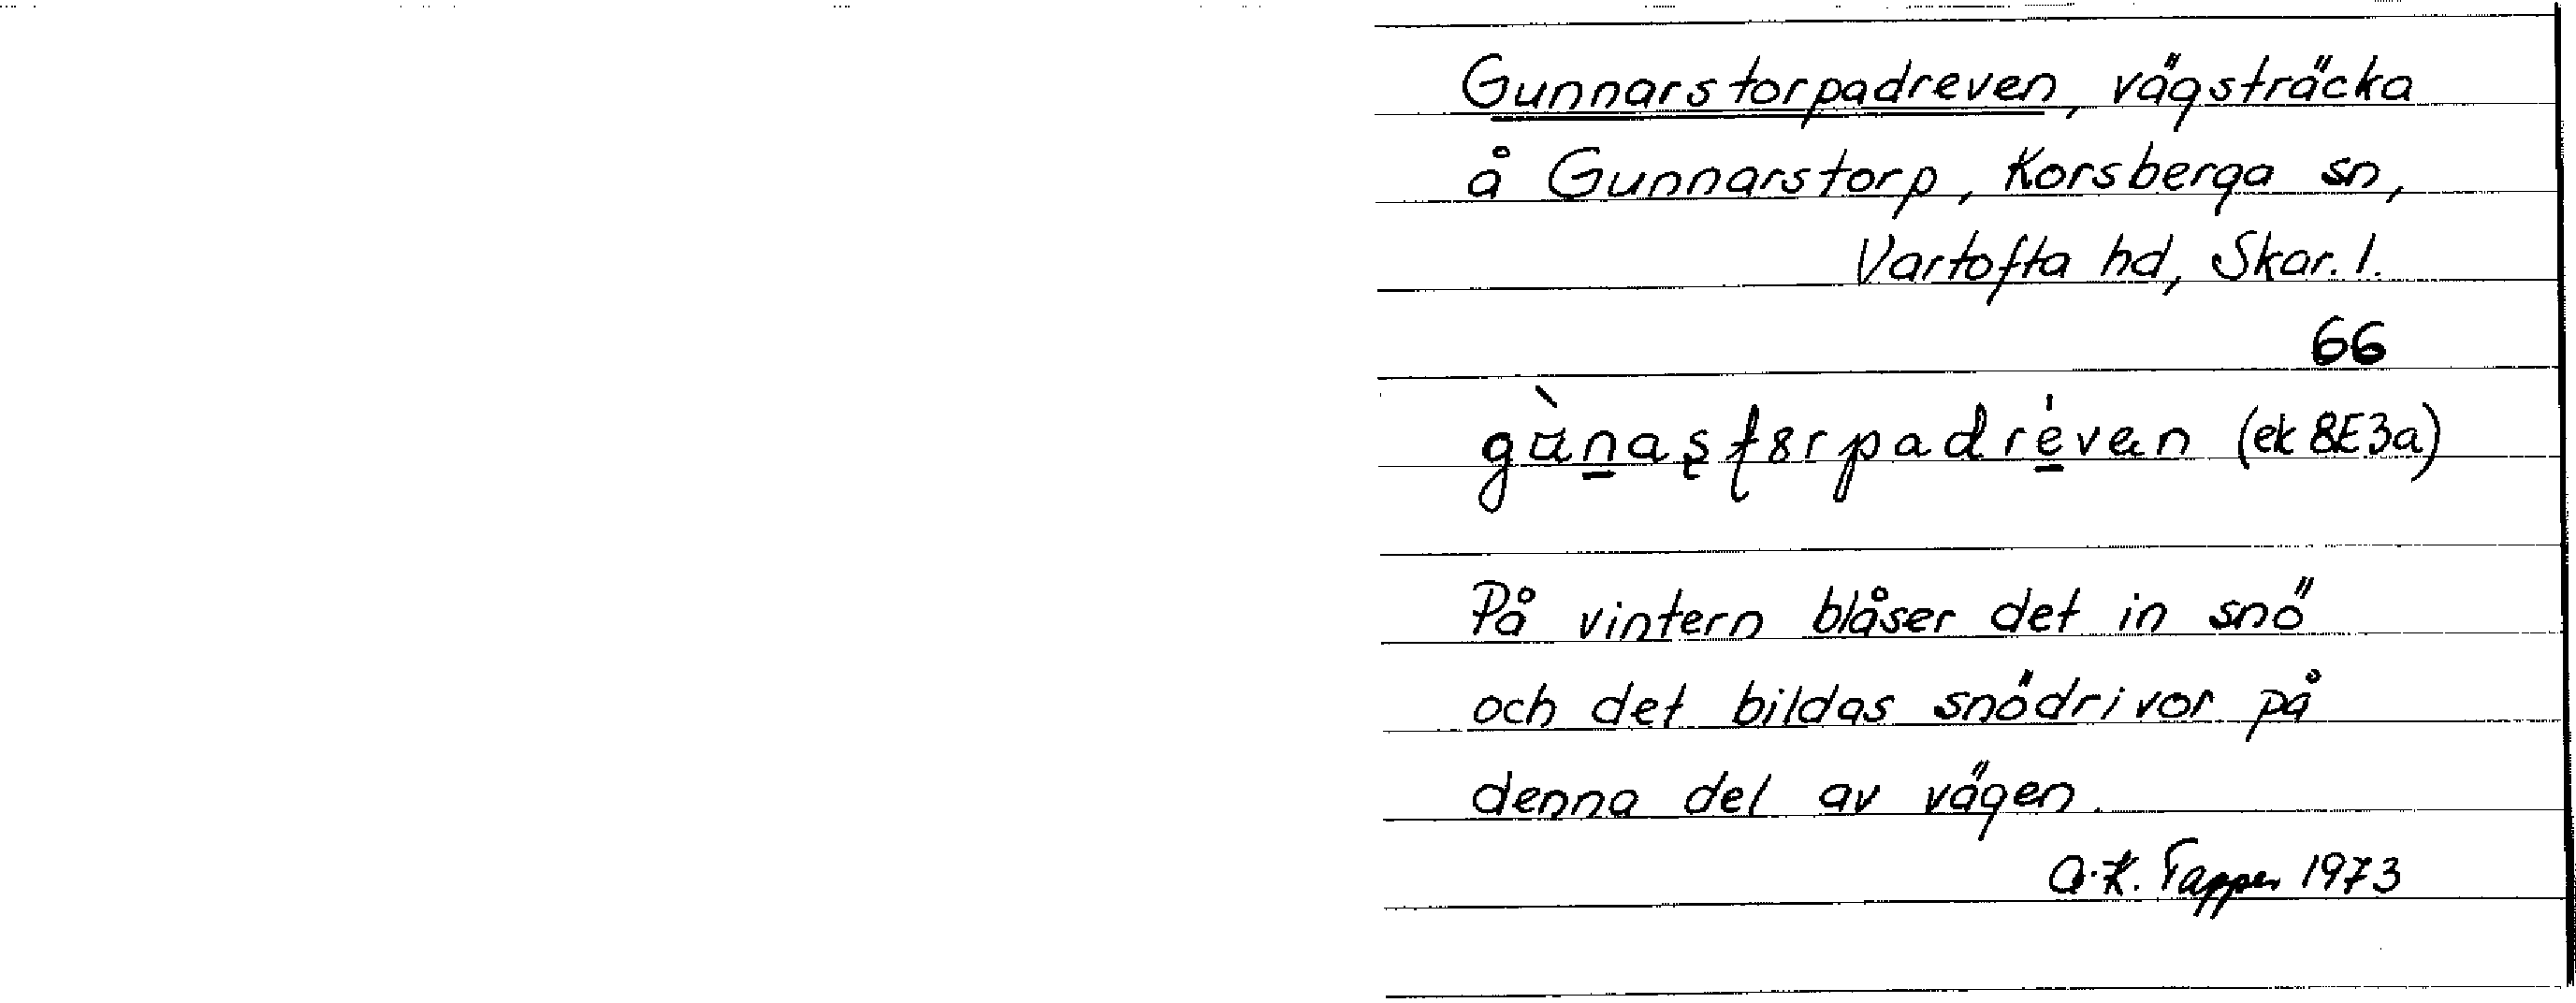 Gunnarstorpadreven, vägsträcka
å Gunnarstorp, Korsberga sn,
Vartofta hd, Skar. l.
66
(ek 8E3a)
På vintern blåser det in snö
och det bildas snödrivor på
denna del av vägen.
A-K. Tapper 1973